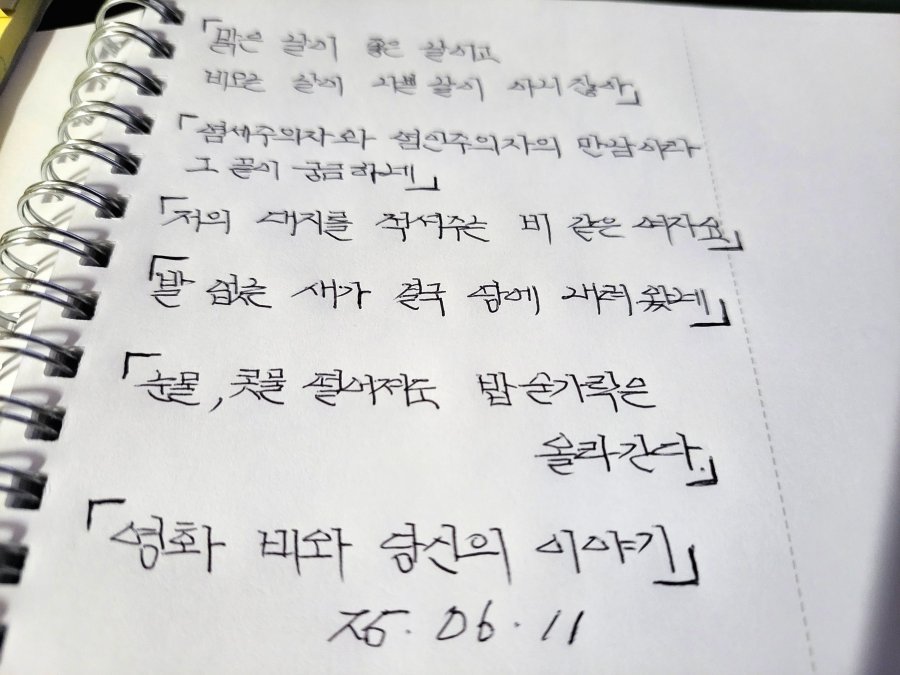 「맑은 날이 좋은 날이고
비오는 날이 나쁜 날이 아니잖아」
「염세주의자와 염인주의자의 만남이라
그 끝이 궁금하네」
「저의 대지를 적셔주는 비 같은 여자요」
「발 없는 새가 결국 땅에 내려왔네」
「눈물, 콧물 떨어져도 밥숟가락은
올라간다.」
「영화 비와 당신의 이야기」
25. 06. 11